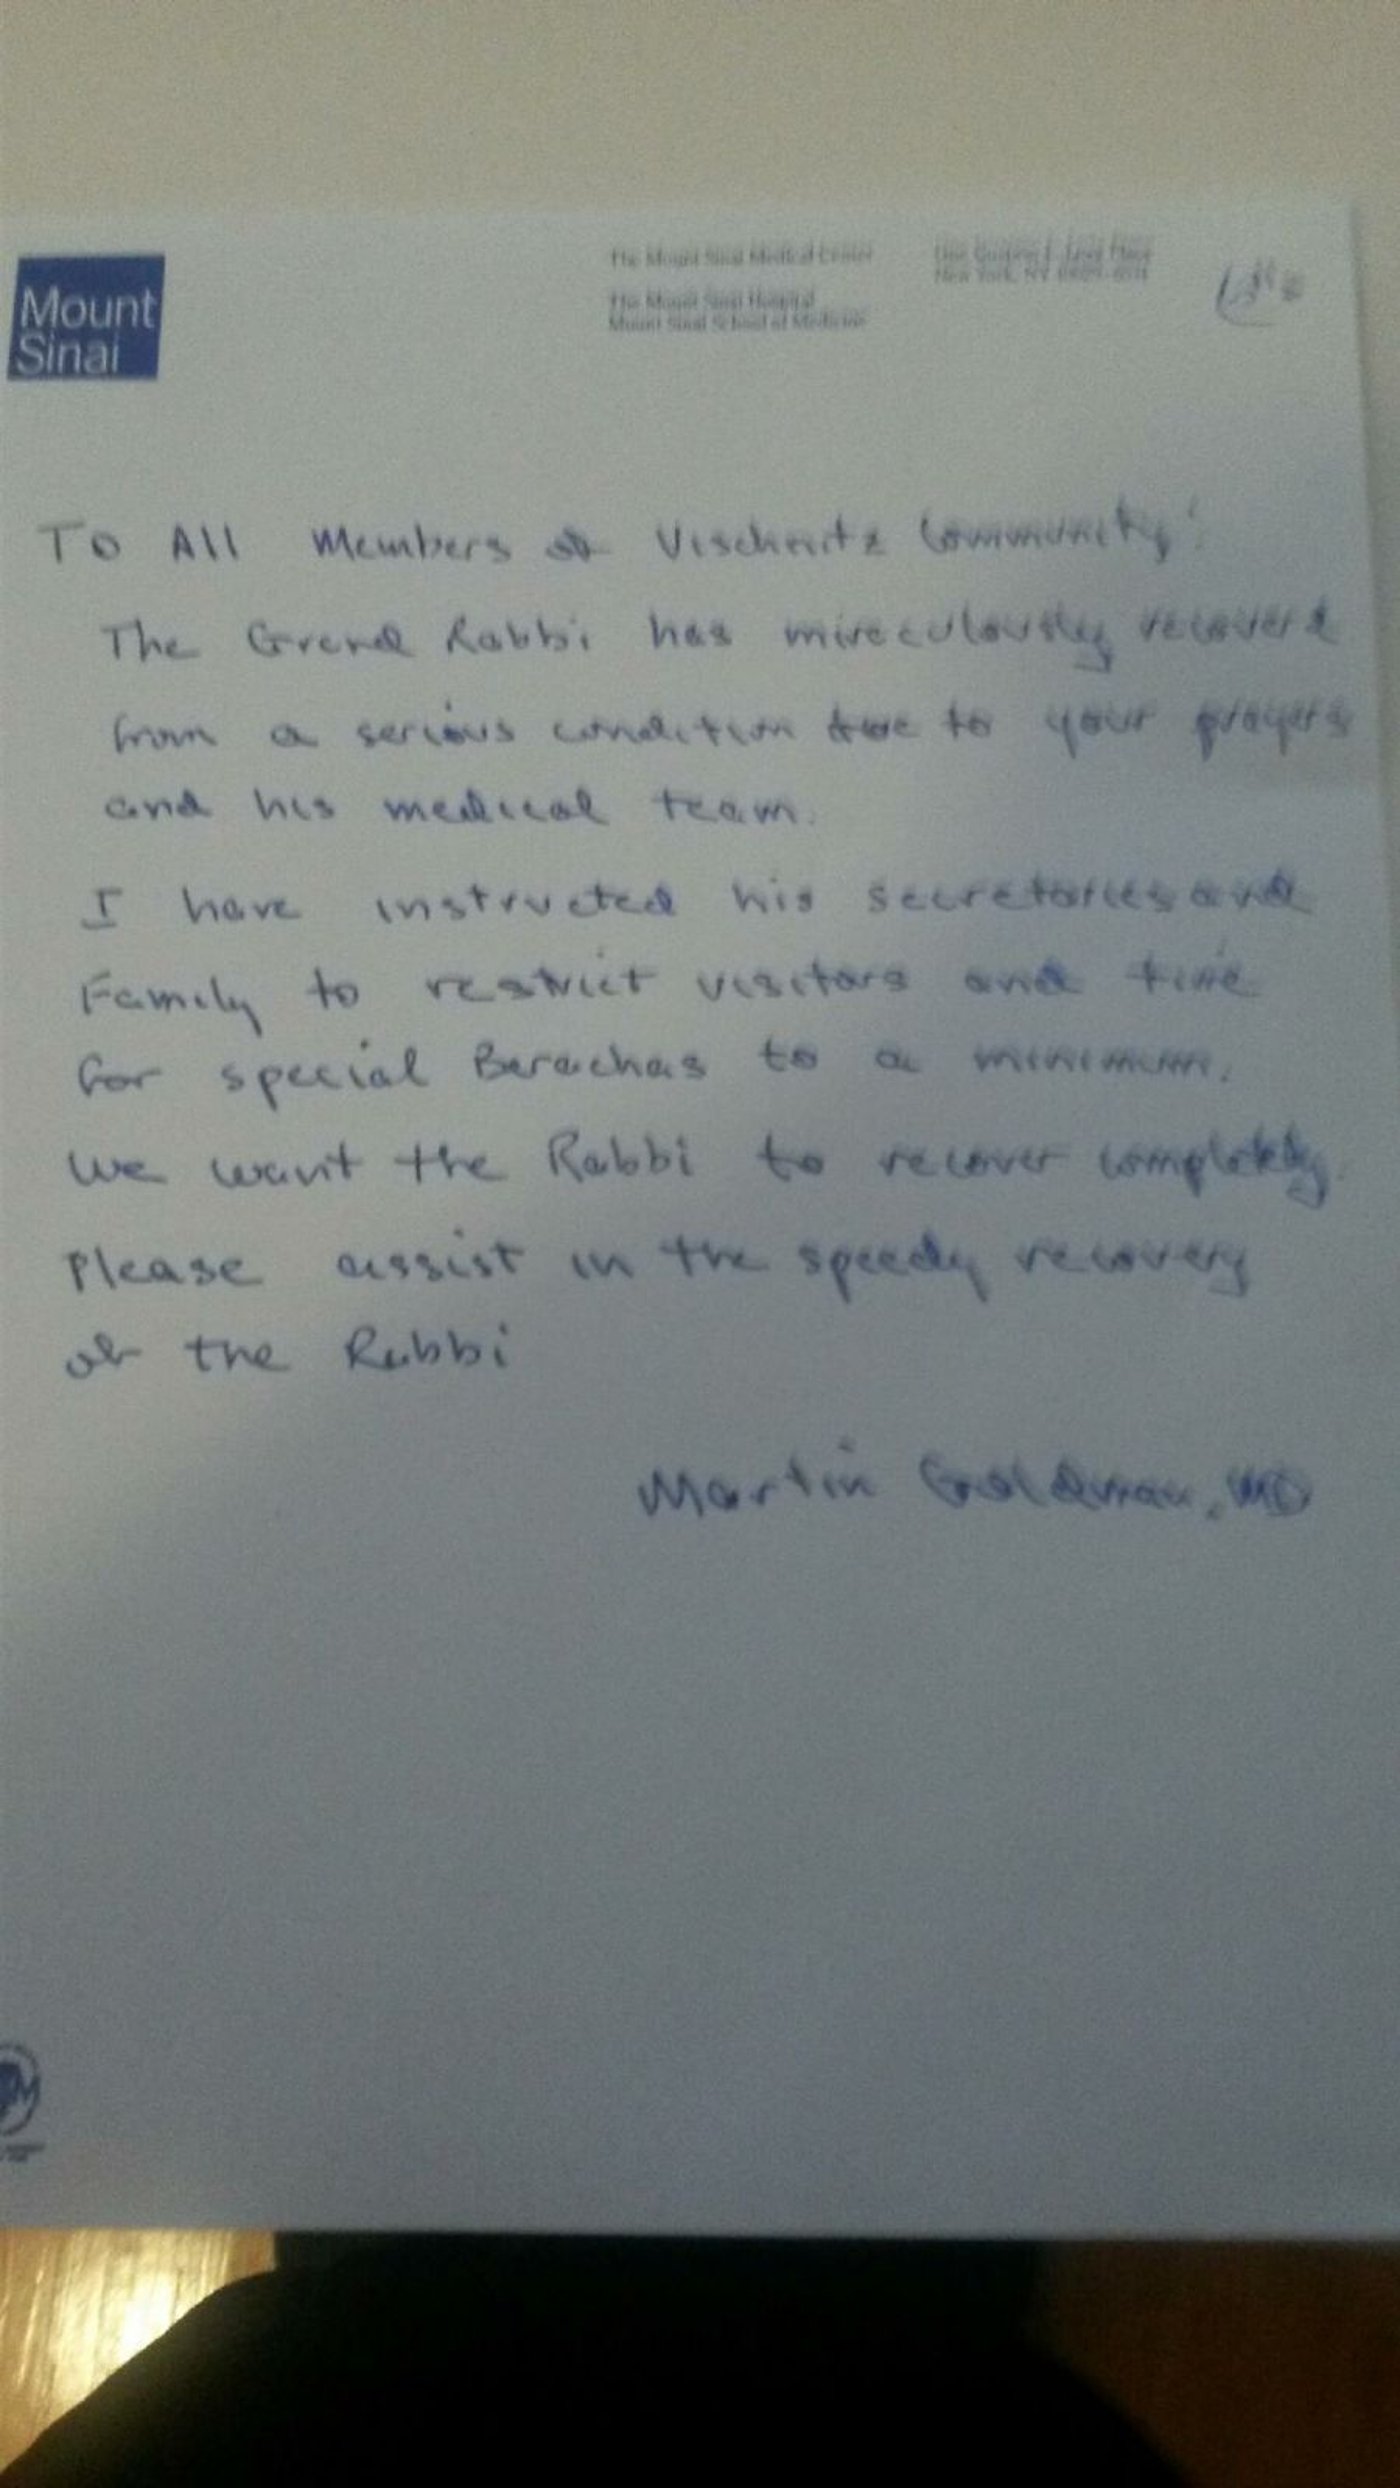 Mount
Sinai
The Mount Sinai Medical Center
The Mount Sinai Hospital
Mount Sinai School of Medicine
One Gustave L. Levy Place
New York, NY
To All Members of Vischnitz Community:
The Grand Rabbi has miraculously recovered
from a serious condition due to your prayers
and his medical team.
I have instructed his secretaries and
Family to restrict visitors and time
for special Berachas to a minimum.
We want the Rabbi to recover completely.
Please assist in the speedy recovery
of the Rabbi
Martin Goldman, MD